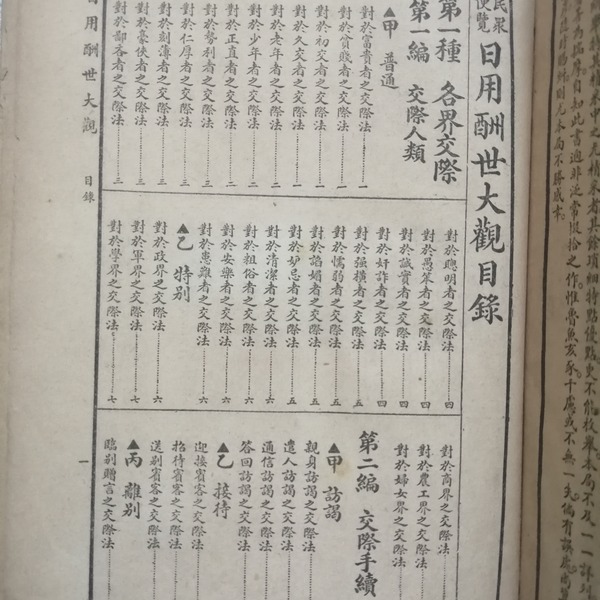 民眾
便覽
日用酬世大觀目錄
第一種 各界交際
第一編 交際人類
▲甲 普通
對於富貴者之交際法…………一
對於貧賤者之交際法…………一
對於初交者之交際法…………一
對於久交者之交際法…………一
對於老年者之交際法…………二
對於少年者之交際法…………二
對於正直者之交際法…………二
對於勢利者之交際法…………三
對於仁厚者之交際法…………三
對於刻薄者之交際法…………三
對於豪俠者之交際法…………三
對於鄙吝者之交際法…………三
對於聰明者之交際法…………四
對於愚笨者之交際法…………四
對於誠實者之交際法…………四
對於奸詐者之交際法…………四
對於強橫者之交際法…………五
對於懦弱者之交際法…………五
對於諂媚者之交際法…………五
對於妒忌者之交際法…………五
對於清潔者之交際法…………五
對於粗俗者之交際法…………六
對於安樂者之交際法…………六
對於患難者之交際法…………六
▲乙 特別
對於政界之交際法…………六
對於軍界之交際法…………七
對於學界之交際法…………七
對於商界之交際法…………
對於農工界之交際法…………
對於婦女界之交際法…………
第二編 交際手續
▲甲 訪謁
親身訪謁之交際法…………
遣人訪謁之交際法…………
通信訪謁之交際法…………
答回訪謁之交際法…………
▲乙 接待
迎接賓客之交際法…………
招待賓客之交際法…………
送別賓客之交際法…………
▲丙 離別
臨別贈言之交際法…………
日用酬世大觀 目錄
一